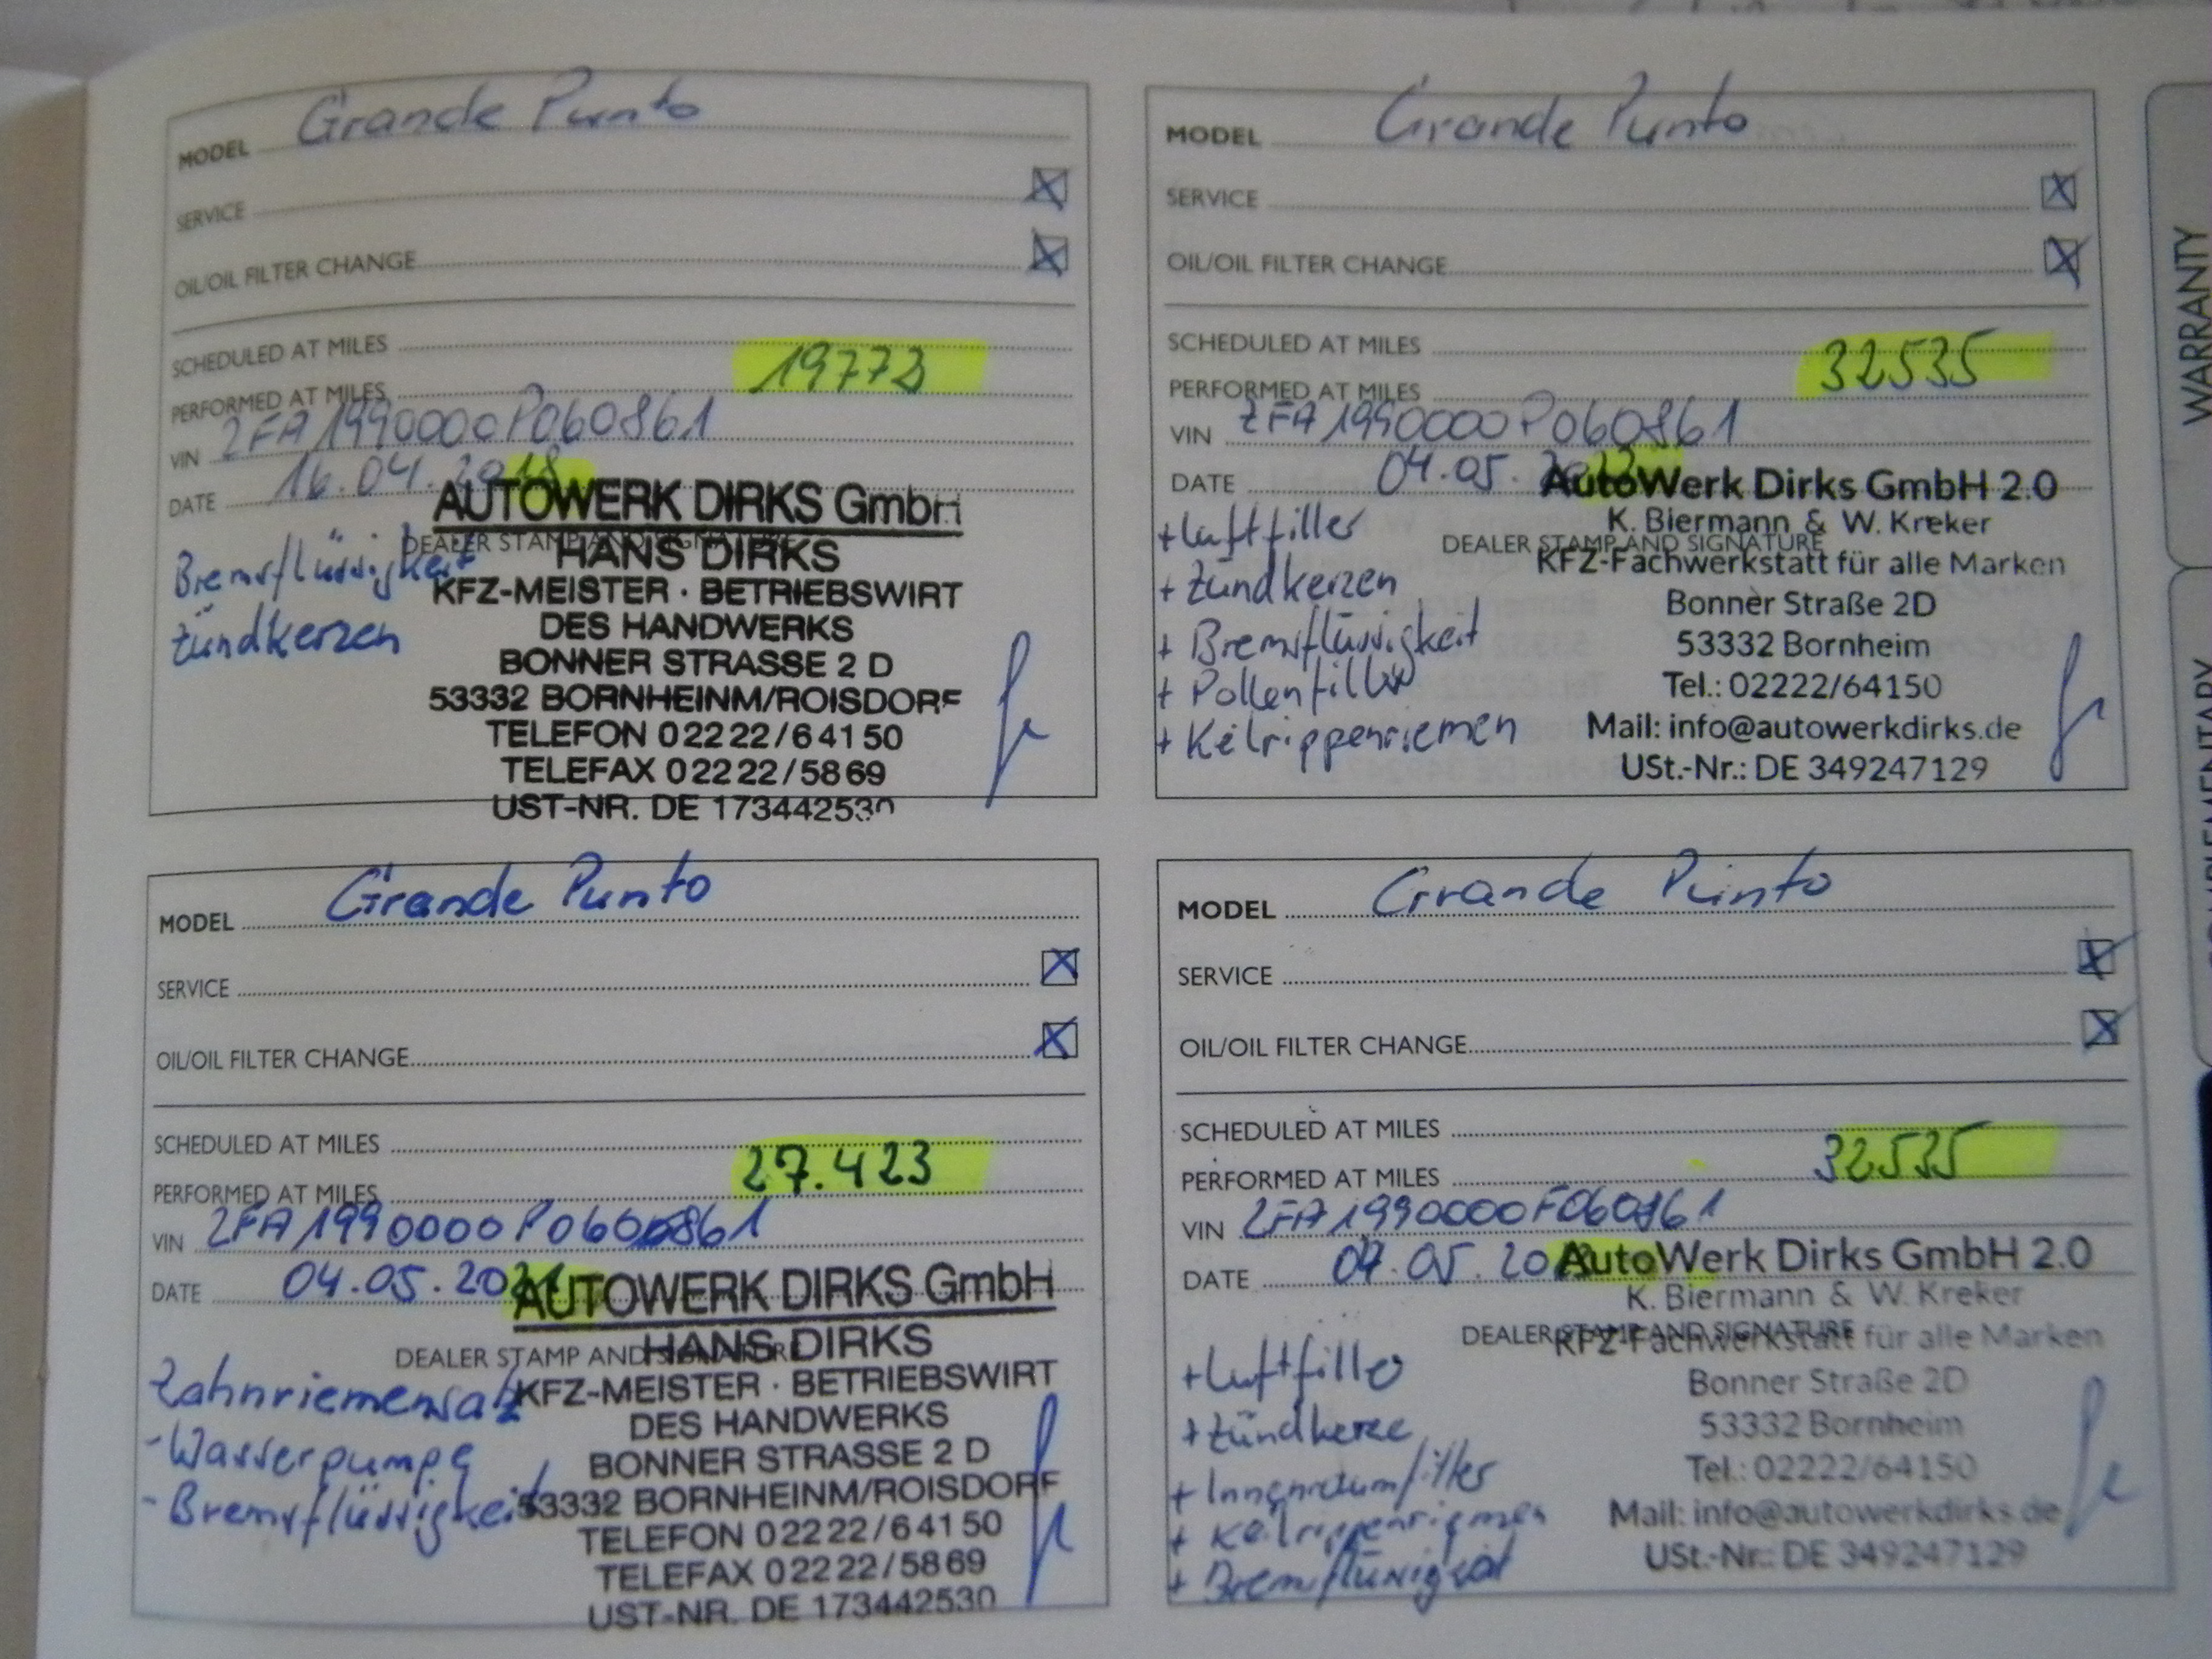 MODEL Grande Punto
SERVICE
OIL/OIL FILTER CHANGE
SCHEDULED AT MILES
PERFORMED AT MILES 19773
VIN ZFA1990000P060861
DATE 16.04.2018
DEALER STAMP AND SIGNATURE
Bremsflüssigkeit
Zündkerzen
AUTOWERK DIRKS GmbH
HANS DIRKS
KFZ-MEISTER · BETRIEBSWIRT
DES HANDWERKS
BONNER STRASSE 2 D
53332 BORNHEINM/ROISDORF
TELEFON 02222/64150
TELEFAX 02222/5869
UST-NR. DE 173442530
MODEL Grande Punto
SERVICE
OIL/OIL FILTER CHANGE
SCHEDULED AT MILES
PERFORMED AT MILES 32535
VIN ZFA1990000P060861
DATE 04.05.
DEALER STAMP AND SIGNATURE
+ Luftfilter
+ Zündkerzen
+ Bremsflüssigkeit
+ Pollenfilter
+ Keilrippenriemen
AutoWerk Dirks GmbH 2.0
K. Biermann & W. Kreker
KFZ-Fachwerkstatt für alle Marken
Bonner Straße 2D
53332 Bornheim
Tel.: 02222/64150
Mail: info@autowerkdirks.de
USt.-Nr.: DE 349247129
MODEL Grande Punto
SERVICE
OIL/OIL FILTER CHANGE
SCHEDULED AT MILES
PERFORMED AT MILES 27.423
VIN
DATE 04.05.2021
DEALER STAMP AND SIGNATURE
Zahnriemensatz
- Wasserpumpe
- Bremsflüssigkeit
AUTOWERK DIRKS GmbH
HANS DIRKS
KFZ-MEISTER · BETRIEBSWIRT
DES HANDWERKS
BONNER STRASSE 2 D
53332 BORNHEINM/ROISDORF
TELEFON 02222/64150
TELEFAX 02222/5869
UST-NR. DE 173442530
MODEL Grande Punto
SERVICE
OIL/OIL FILTER CHANGE
SCHEDULED AT MILES
PERFORMED AT MILES 32535
VIN ZFA1990000P060861
DATE 04.05.
DEALER STAMP AND SIGNATURE
+ Luftfilter
+ Zündkerze
+ Innenraumfilter
+ Keilrippenriemen
+ Bremsflüssigkeit
AutoWerk Dirks GmbH 2.0
K. Biermann & W. Kreker
KFZ-Fachwerkstatt für alle Marken
Bonner Straße 2D
53332 Bornheim
Tel.: 02222/64150
Mail: info@autowerkdirks.de
USt.-Nr.: DE 349247129
WARRANTY